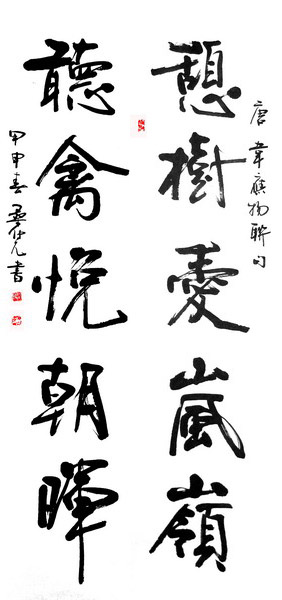 唐韋應物聯句
憩樹愛嵐嶺
聽禽悅朝暉
甲申春書